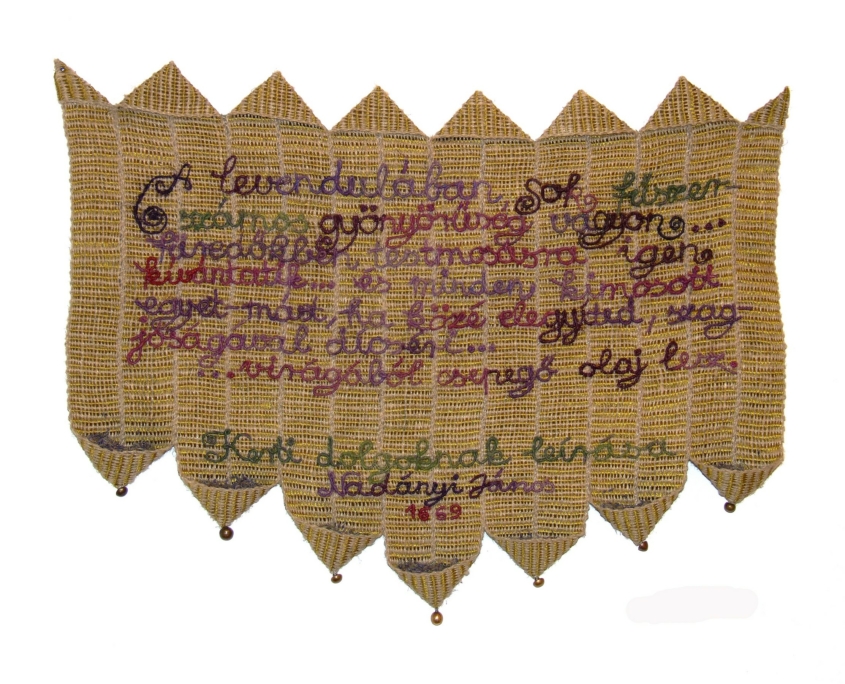 A levendulában, Sok, fűszer-
számos gyönyörűség vagyon...
feredőkben, testmosásra igen
kivántatik... és minden kimosott
egyet-mást, ha közé elegyíted, szag-
jóságával dicsért...
...virágából csepegő olaj lesz.
Kerti dolgoknak leírása
Nadányi János
1669